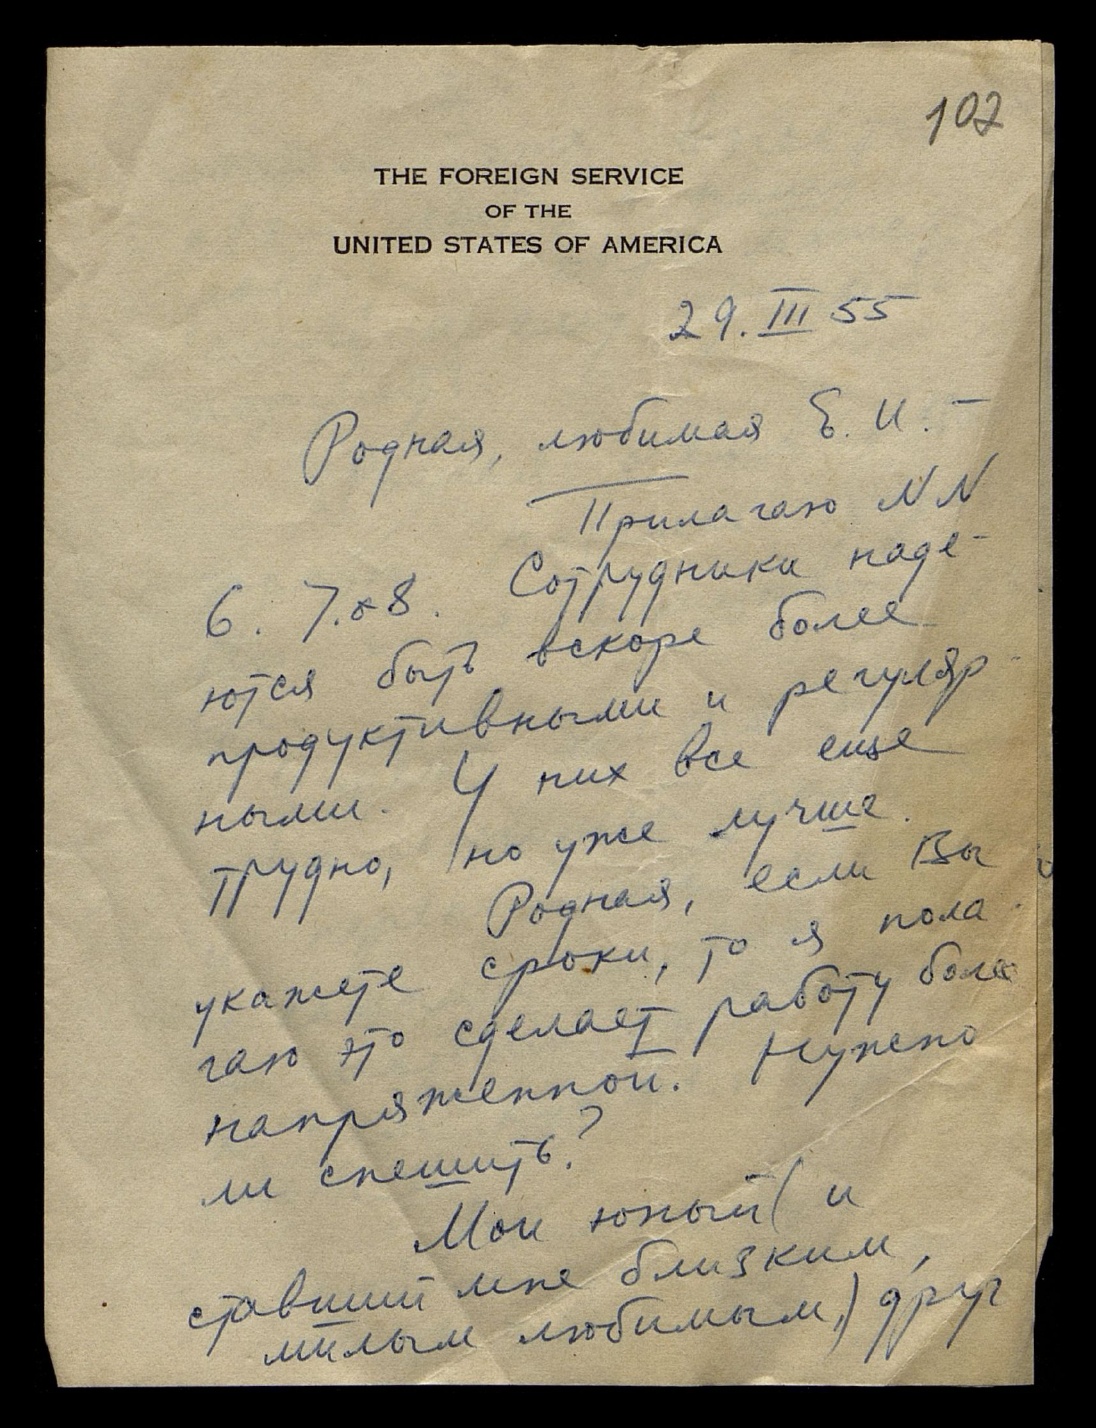 102
THE FOREIGN SERVICE
OF THE
UNITED STATES OF AMERICA
29. III 55
Родная, любимая Е. И. –
Прилагаю NN
6. 7. 8. Сотрудники наде-
ются быть вскоре более
продуктивными и регуляр-
ными. У них все еще
трудно, но уже лучше.
Родная, если Вы
укажете сроки, то я пола-
гаю это сделает работу более
напряженной. Нужно
ли спешить?
Мой юный (и
ставший мне близким,
милым любимым,) друг